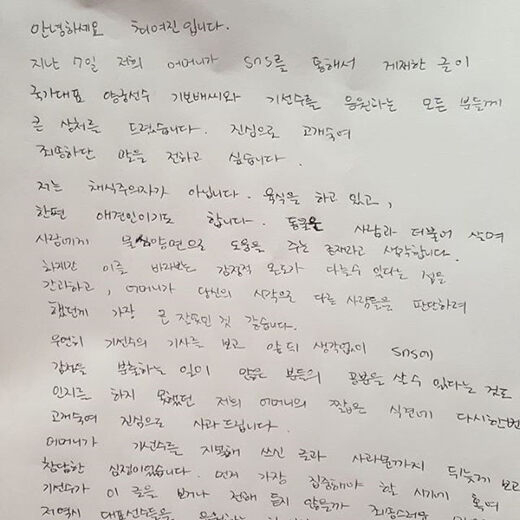 안녕하세요 최여진입니다.
지난 7일 저희 어머니가 SNS를 통해서 게재한 글이
국가대표 양궁선수 기보배씨와 기선수를 응원하는 모든 분들께
큰 상처를 드렸습니다. 진심으로 고개숙여
죄송하단 말을 전하고 싶습니다.
저는 채식주의자가 아닙니다. 육식을 하고 있고,
한편 애견인이기도 합니다. 동물은 사람과 더불어 살며
사람에게 물심양면으로 도움을 주는 존재라고 생각합니다.
하지만 이를 바라보는 감정적 온도가 다를수 있다는 점을
간과하고, 어머니가 당신의 시각으로 다른 사람들을 판단하려
했던게 가장 큰 잘못인 것 같습니다.
우연히 기선수의 기사를 보고 앞뒤 생각없이 SNS에
감정을 분출하는 일이 많은 분들의 공분을 살 수 있다는 것도
인지를 하지 못했던 저희 어머니의 짧은 식견에 다시한번
고개숙여 진심으로 사과드립니다.
어머니가 기선수를 지목해 쓰신 글과 사과문까지 뒤늦게 보고
참담한 심정이었습니다. 먼저 가장 집중해야 할 시기에 혹여
기선수가 이 글을 보거나 전해 듣지 않을까 죄송스러운
저 역시 대표선수들을 응원하는